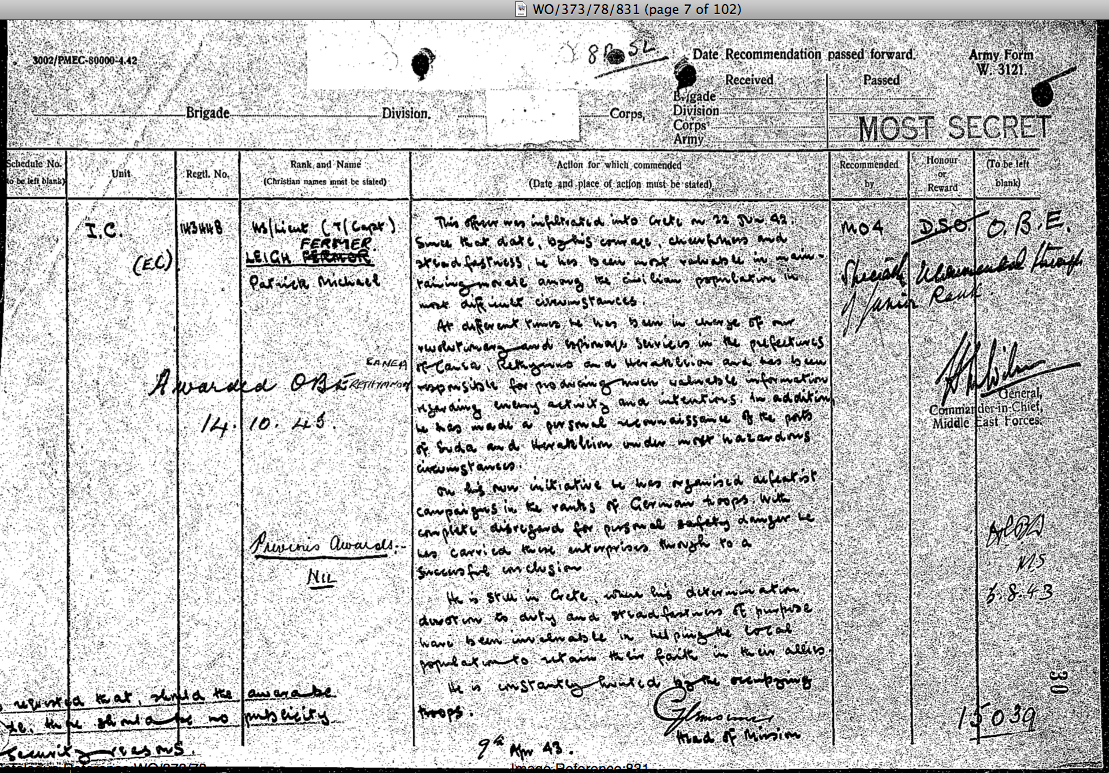 WO/373/78/831 (page 7 of 102)
3002/PMEC-80000-4.42
Date Recommendation passed forward.
Army Form
W. 3121.
Received Passed
Brigade Division. Corps,
Brigade
Division
Corps
Army
MOST SECRET
Schedule No.
(to be left blank)
Unit
Regtl. No.
Rank and Name
(Christian names must be stated)
Action for which commended
(Date and place of action must be stated)
Recommended
by
Honour
or
Reward
(To be left
blank)
I.C.
(EC)
143448
WS/Lieut (T/Capt)
FERMER
LEIGH FERMOR
Patrick Michael
KANEA
RETHYMNON
Awarded OBE
14. 10. 43.
Previous Awards:-
NIL
This officer was infiltrated into Crete on 22 Jun 42.
Since that date, by his courage, cheerfulness and
steadfastness, he has been most valuable in main-
taining morale among the civilian population in
most difficult circumstances.
At different times he has been in charge of our
revolutionary and espionage services in the prefectures
of Canea, Rethymno and Heraklion and has been
responsible for producing much valuable information
regarding enemy activity and intentions. In addition,
he has made a personal reconnaissance of the ports
of Suda and Heraklion under most hazardous
circumstances.
On his own initiative he has organised defeatist
campaigns in the ranks of German troops. With
complete disregard for personal safety danger he
has carried these enterprises through to a
successful conclusion
He is still in Crete, where his determination,
devotion to duty and steadfastness of purpose
have been invaluable in helping the local
population to retain their faith in their allies.
He is constantly hunted by the occupying
troops.
Head of Mission
9th Apr 43.
MO4
D.S.O. O.B.E.
Specially Recommended through
Junior Rank
General,
Commander-in-Chief,
Middle East Forces.
MS
5.8.43
30
15039
requested that, should the award be
there should be no publicity
security reasons.
Image Reference:831